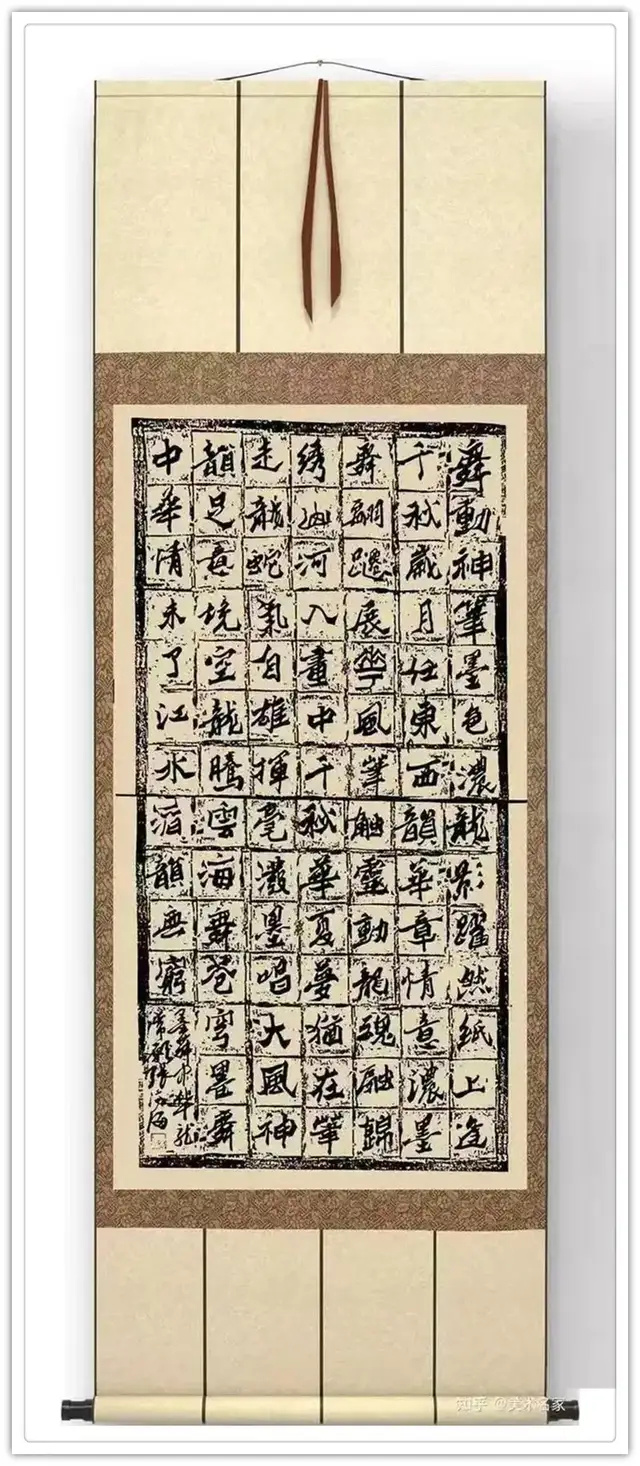 舞動神筆墨色濃龍影躍然紙上逢
千秋歲月任東西韻華章情意濃墨
舞翩躚展華風筆触靈動龍魂融錦
綉山河入畫中千秋華夏夢猶在筆
走龍蛇氣自雄揮毫潑墨唱大風神
韻足意境空龍騰雲海舞苍穹墨舞
中華情未了江水滔韻無窮
墨舞中華龍
知乎 @美术名家